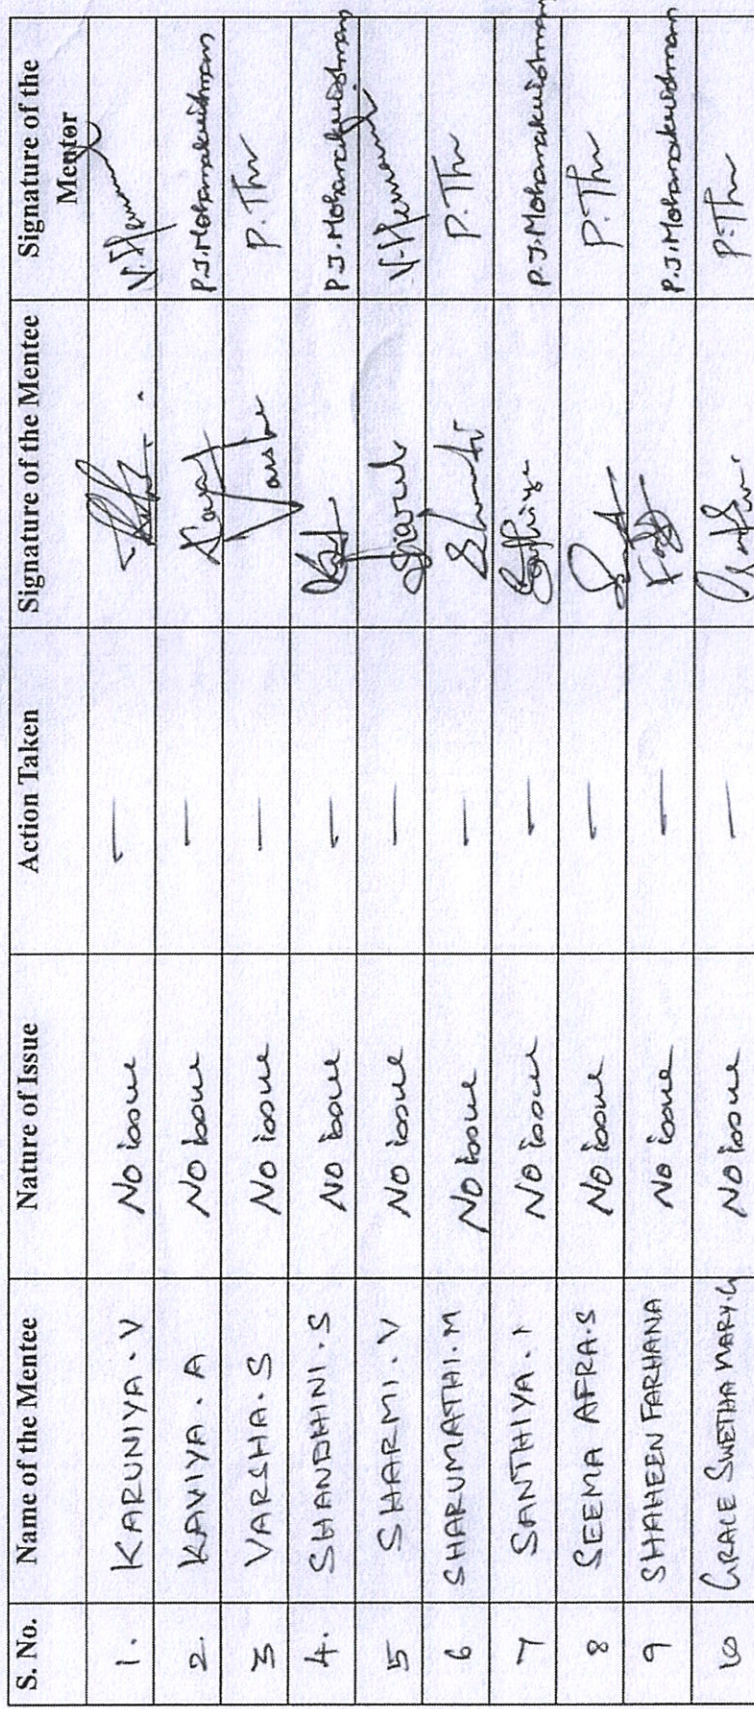 S. No. Name of the Mentee Nature of Issue Action Taken Signature of the Mentee Signature of the Mentor
1. KARUNIYA . V No issue —
2. KAVIYA . A No issue — P.J. Mohanakrishnan
3 VARSHA . S No issue — Varsha P. Thr
4. SHANDHINI . S No issue — P.J. Mohanakrishnan
5 SHARMI . V No issue —
6 SHARUMATHI . M No issue — P. Thr
7 SANTHIYA . No issue — P.J. Mohanakrishnan
8 SEEMA AFRA . S No issue — P. Thr
9 SHAHEEN FARHANA No issue — P.J. Mohanakrishnan
10 GRACE SWETHA MARY. G No issue — P. Thr